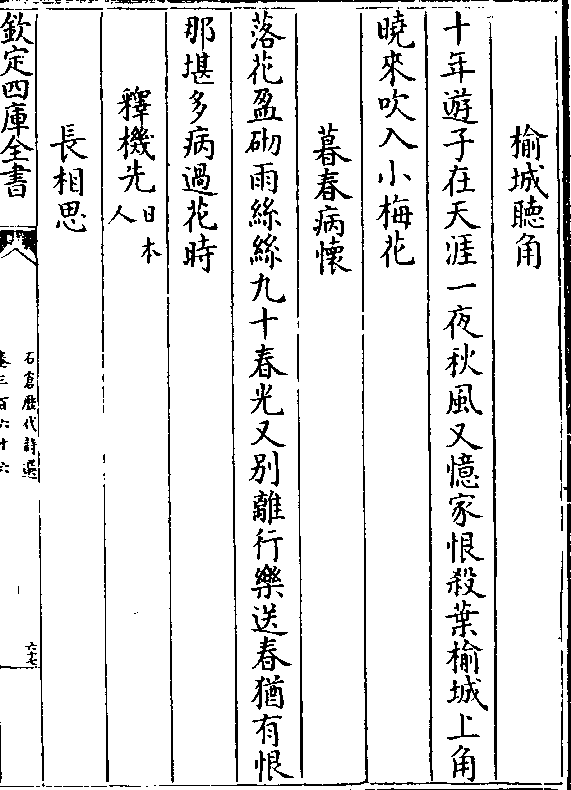 榆城聽角
十年遊子在天涯一夜秋風又憶家恨殺葉榆城上角
曉來吹入小梅花
暮春病懷
落花盈砌雨絲絲九十春光又別離行樂送春猶有恨
那堪多病過花時
釋機先日本人
長相思
欽定四庫全書
石倉歷代詩選
卷三百六十六
六十七